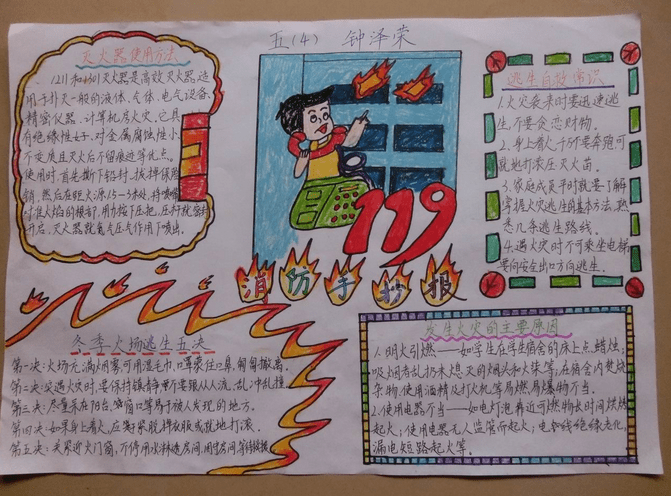 五(4) 钟泽荣
灭火器使用方法
1211和1301灭火器是高效灭火器,适
用于扑灭一般的液体、气体、电气设备、
精密仪器、计算机房火灾。它具
有绝缘性好,对金属腐蚀性小、
不变质且灭火后不留痕迹等优点。
使用时,首先撕下铅封、拔掉保险
销,然后在距火源1.5—3米处,将喷嘴
对准火焰的根部,用力按下压把,压杆就
开启,灭火器就氮气压气作用下喷出。
119
消防手抄报
逃生自救常识
1.火灾袭来时要迅速逃
生,不要贪恋财物。
2.身上着火,千万不要奔跑可
就地打滚压灭火苗。
3.家庭成员平时就要了解
掌握火灾逃生的基本方法,熟
悉几条逃生路线。
4.遇火灾时不可乘坐电梯
要向安全出口方向逃生。
冬季火场逃生五决
第一决:火场充满烟雾,可用湿毛巾、口罩蒙住口鼻,匍匐撤离。
第二决:突遇火灾时,要保持镇静,千万不要跟从人流、乱冲乱撞。
第三决:尽量呆在阳台、窗口等易于被人发现的地方。
第四决:如果身上着火,应赶紧脱掉衣服或就地打滚。
第五决:关紧近火门窗,不停用水淋透房间,固守房间等待救援。
发生火灾的主要原因
1.明火引燃——如学生在学生宿舍的床上点蜡烛;
吸火烟者乱扔未熄灭的烟头和火柴等,在宿舍内焚烧
杂物,使用酒精及打火机等易燃易爆物不当。
2.使用电器不当——如电灯泡靠近可燃物长时间烘烤
起火;使用电器无人监管而起火;电气线绝缘老化,
漏电短路起火等。